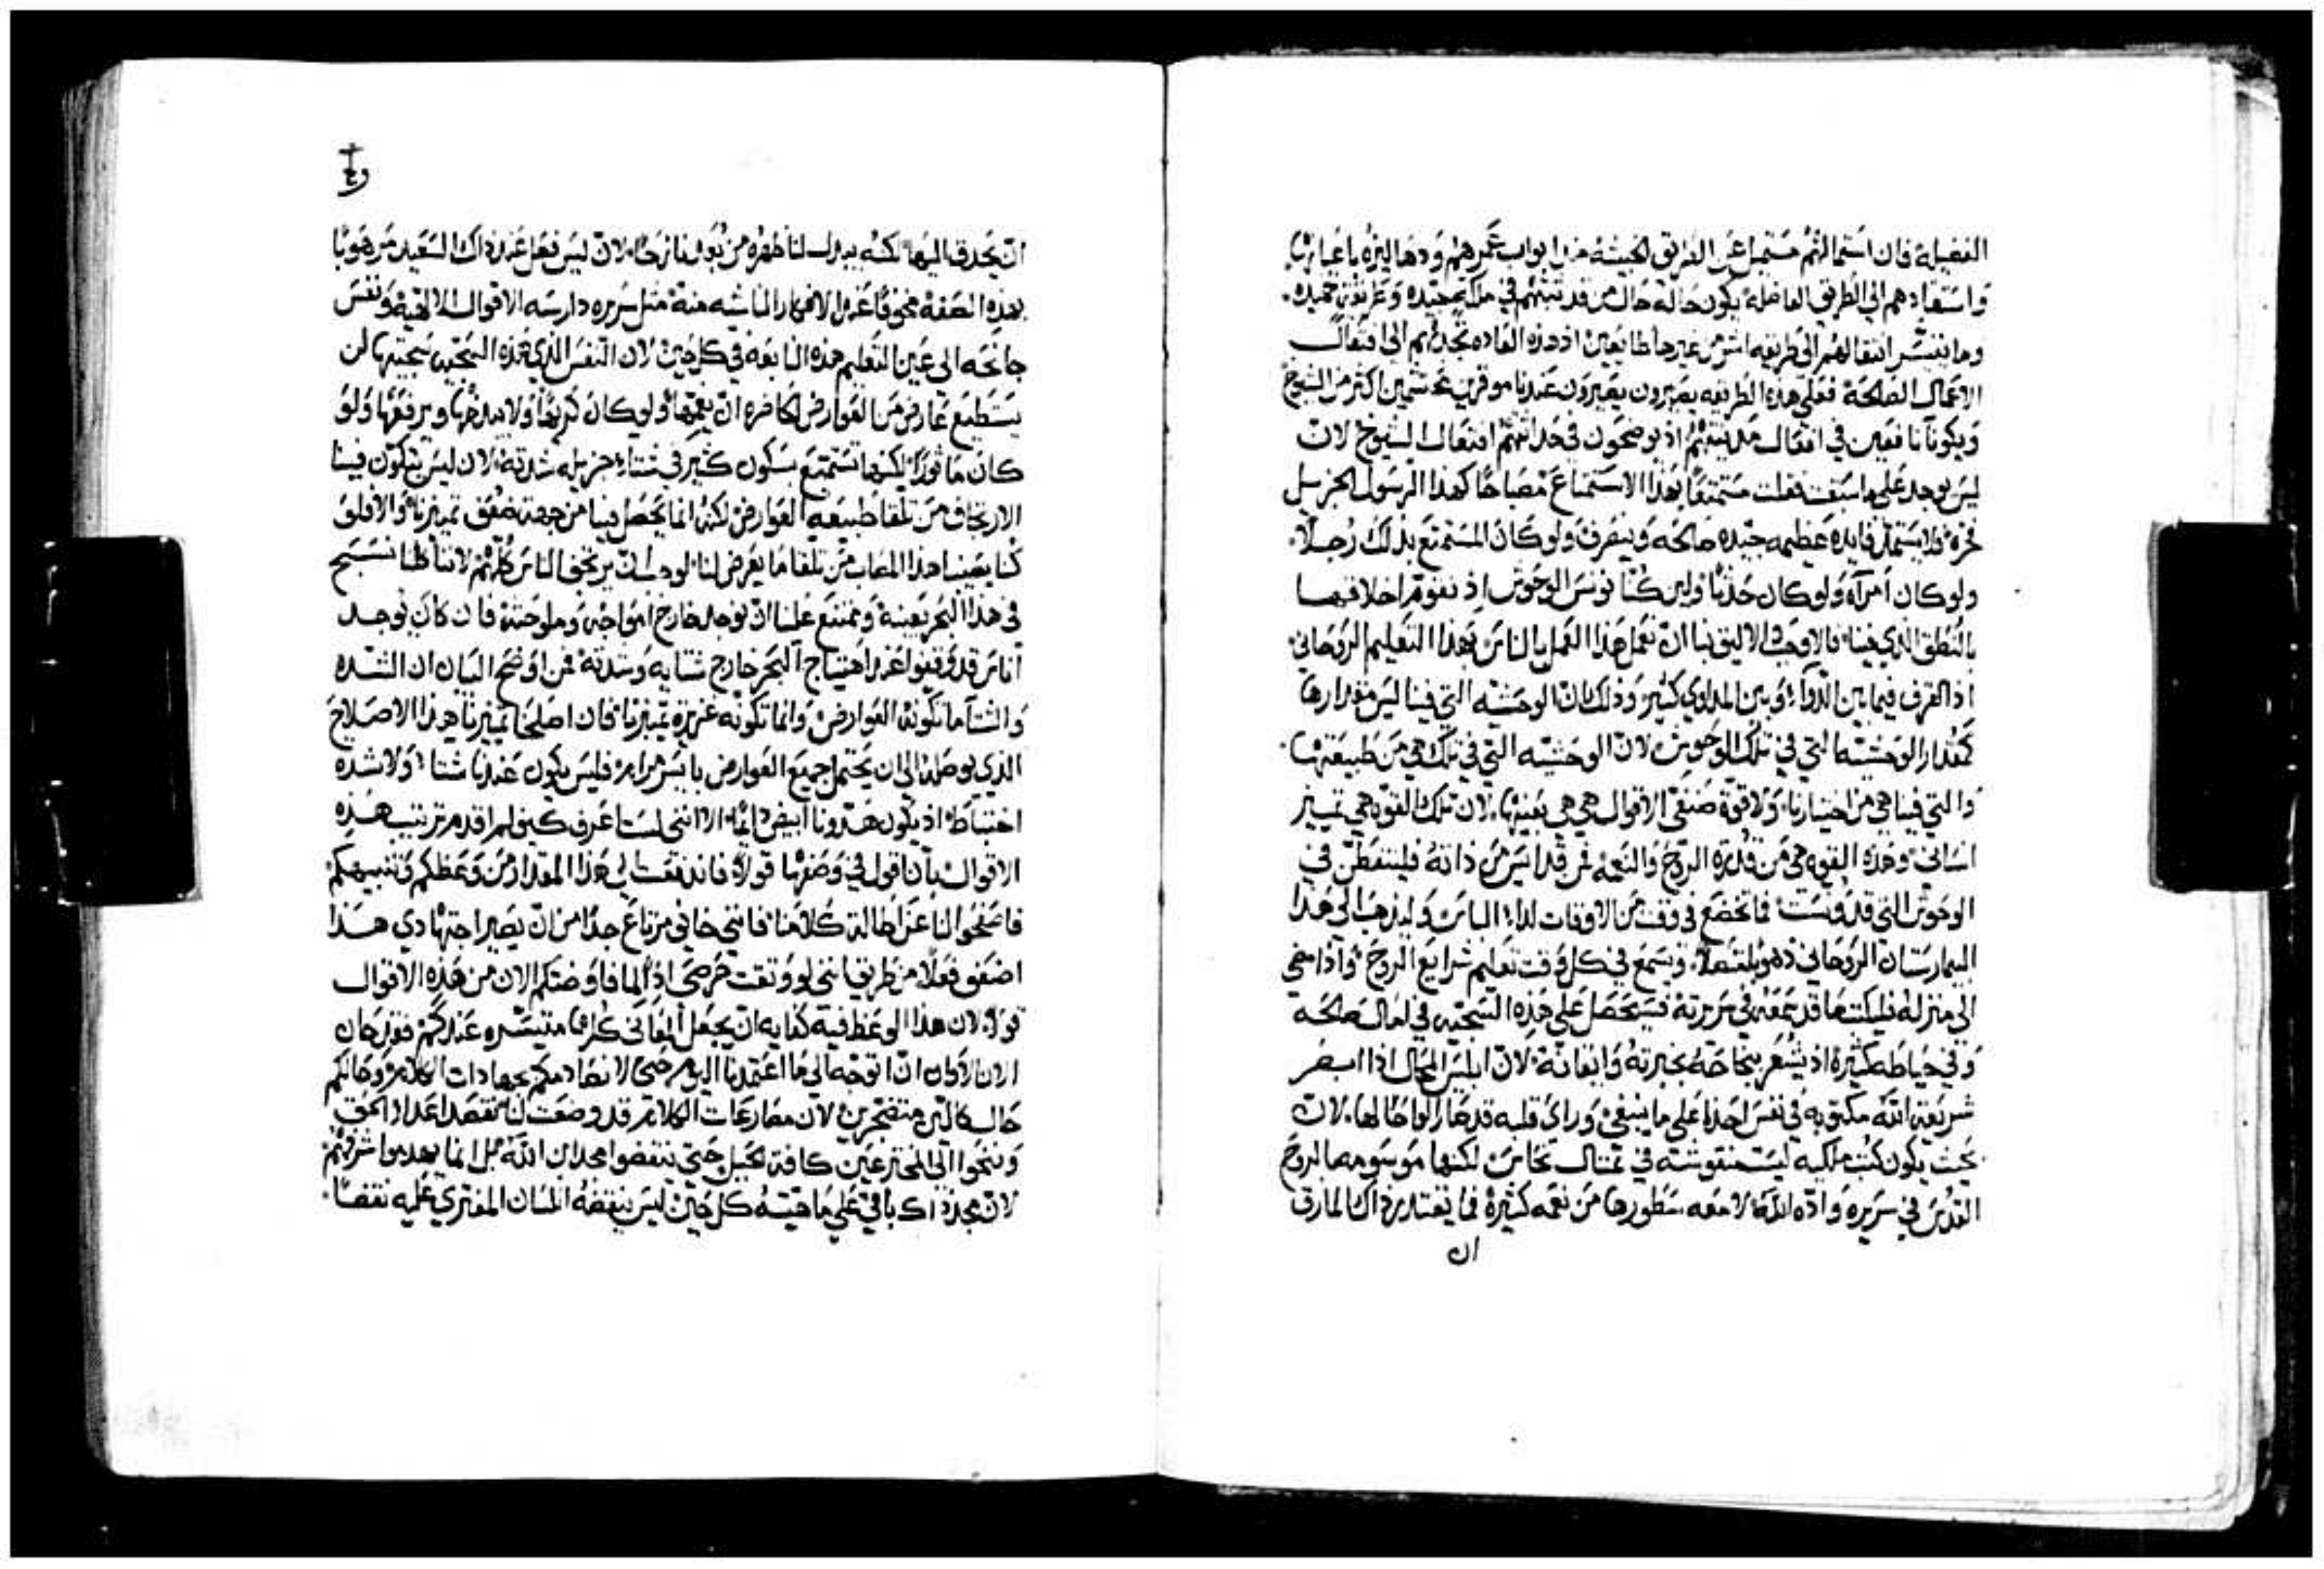 الفضيلة فان استمالهم مستميل عن الطريق الخبيثة من ابواب عمرهم ودهاليزه باعيانها
واستعادهم الى الطريق الفاضلة يكون حالة حال من قد تثبتهم في ملكة جيده وعريقة حميده.
وما يتيسر انتقالهم الى طريقه اشر من غيرها طايعين اذ هذه العاده تجذبهم الى افتعال
الاعمال الصالحة فعلى هذه الطريقه يصيرون عندنا موقرين محتشمين اكثر من الشيوخ
ويكونا نافعين في افعال مدينتهم اذ يوضحون في حداثتهم افتعال الشيوخ لان
ليس يوجد على ما سبقت فقلت مستمتعًا بهذا الاستمتاع مصباحًا كهذا الرسول الجزيل
فخره فلا يستمد فايدة عظيمه جيده صالحه وينصرف ولو كان المستمتع بذلك رجلًا.
ولو كان امرآه ولو كان حدثًا ولين كنا نونس الوحوش اذ نقوم اخلاقها
بالنطق الذي فينا فالاوجب الاليق بنا ان نعمل هذا العمل بالناس بهذا التعليم الروحاني.
اذ الفرق فيما بين الدوآء وبين المداوي كثير وذلك ان الوحشيه التي فينا ليس مقدارها
كمقدار الوحشيه التي في تلك الوحوش لان الوحشيه التي في تلك هي من طبيعتها.
والتي فينا هي من اختيارنا ولا قوة صنفي الاقوال هي هي بعينها لان تلك القوه هي تمييز
انساني وهذه القوه هي من قدرة الروح والنعمه فمن قد ايس من ذاته فليتفطن في
الوحوش التي قد ونست فانخضع في وقت من الاوقات لدا الباس وليذهب الى هذا
البيمارستان الروحاني وهو متصلًا ويسمع في كل وقت تعليم شرايع الروح واذا مضى
الى منزله فليكتب ما قد سمعه في سريرته فيستحصل على هذه السجيه في امال صالحة
وفي حياطه كثيره اذ يشعر بنجاحه بخبرته وايقانه لان ابليس المحال اذا ابصر
شريعة الله مكتوبه في نفس احدنا على ما ينبغي وراى قلبه قد صار الواحًا لها. لان
بحيث يكون كتب ملكيه ليست منقوشته في تمثال نحاس لكنها موسومه بالروح
القدس في سريره واده الله لامعه سطورها من نعمه كثيرة فما يقتدر ذاك المارق
ان
ان يحدق اليها لكنه يدبر لنا ظهره من بُعد نازحًا لان ليس فعل عند ذاك السعيد مرهوبًا
بهذه الصفه مخوفًا عند الافكار الناشيه منه مثل سريره دارسه الاقوال الالاهية ونفس
جانحه الى عين التعليم هذه النابعه في كل حين لان النفس الذي هذه السجيه سجيتها لن
يستطيع عارض من العوارض الحاضره ان يغمها ولو كان كريهًا ولا يبذخها ويرفعها ولو
كان ماثورًا لكنها تستمتع بسكون كثير في شتاء جزيله شدته لان ليس يتكون فينا
الارتجاف من تلقا طبيعه العوارض لكنه انما يحصل فينا من جهة ضعف تمييزنا والا فلو
كنا يصيبنا هذا المصاب من تلقا ما يعرض لنا لوجب ان يرتجف الناس كلهم لاننا كلنا نسبح
في هذا البحر بعينه ويمتنع علينا ان نوجد خارج امواجه وملوحته فان كان يوجد
اناس قد وقفوا عند اهتياج البحر خارج شتايه وشدته فمن اوضح البيان ان الشده
والشتا ما تكونه العوارض وانما تكونه غريزه تمييزنا فان اصلحنا تمييزنا هذا الاصلاح
الذي يوصله الى ان يحتمل جميع العوارض بايسر مرام فليس يكون عندنا شتاء ولا شده
اختباط اذ يكون هدونا ابيض دايمًا الا انني لست اعرف كيف لم اقدم ترتيب هذه
الاقوال بان اقول في وصفها قولًا فاندفعت الى هذا المقدار من وعظكم وتنبيهكم
فاصفحوا لنا عن اطالة كلامنا فانني خايف مرتاع جدًا من ان يصير اجتهادي هذا
اضعف فعلًا من طريق انني لو وثقت حرصي اذًا لما فاوضتكم الان من هذه الاقوال
قولًا لان هذا الوعظ فيه كفايه ان يجعل المعاني كلها متيسره عندكم فقد حان
الان الاوان ان اتوجه الى ما اعتمدنا اليوم حتى لا نصادمكم بجهادات الكلام وحالكم
حال كالين متضجرين لان مصارعات الكلام قد وضعت لنا نقصد اعداد الحق
ونتحوا الى المخترعين كافة الحيل حتى ينقضوا مجد ابن الله بل انما يهدموا شرفهم
لان مجد ذاك باقي على ماهيته كل حين ليس ينقضه اللسان المفتري عليه نقضًا.